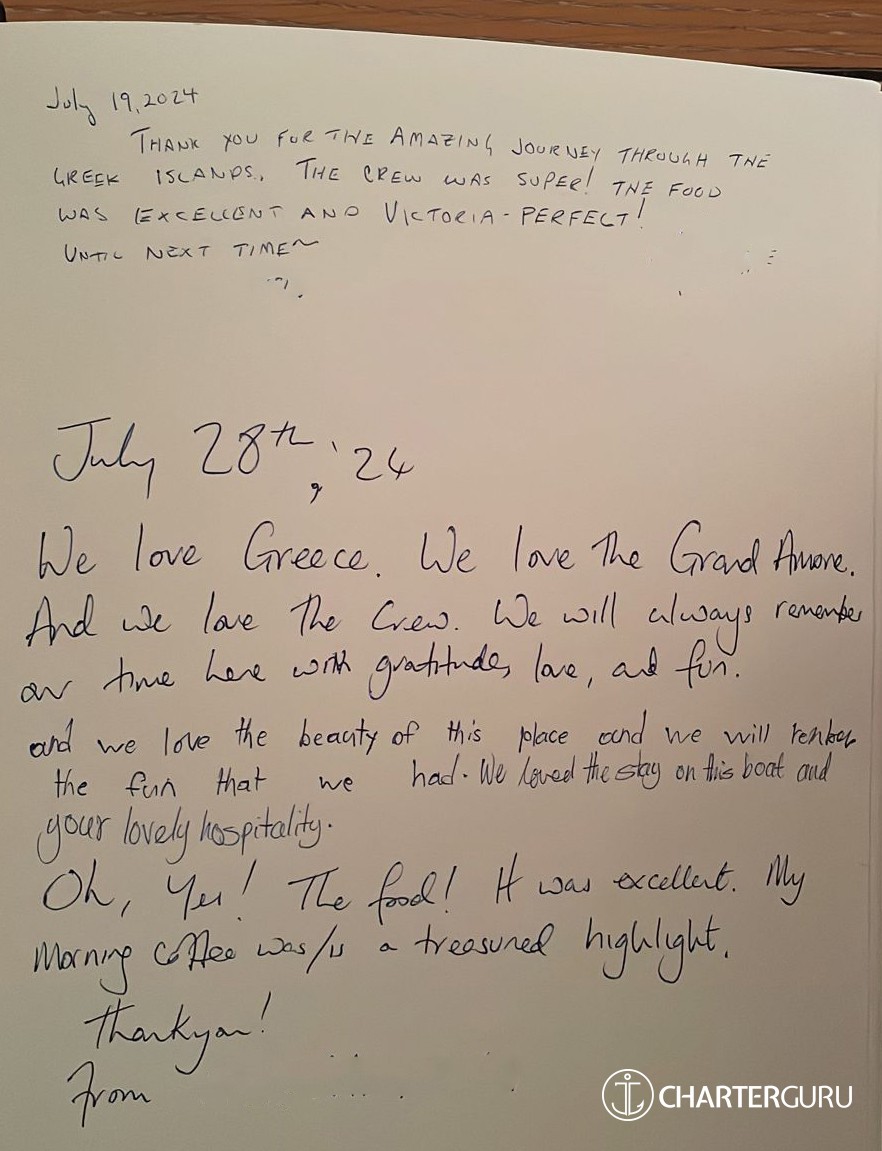 July 19, 2024
THANK YOU FOR THE AMAZING JOURNEY THROUGH THE
GREEK ISLANDS. THE CREW WAS SUPER! THE FOOD
WAS EXCELLENT AND VICTORIA - PERFECT!
UNTIL NEXT TIME~
July 28th, '24
We love Greece. We love The Grand Amore.
And we love The Crew. We will always remember
our time here with gratitude, love, and fun.
and we love the beauty of this place and we will
the fun that we had. We loved the stay on this boat and
your lovely hospitality.
Oh, Yes! The food! It was excellent. My
Morning coffee was/is a treasured highlight.
Thankyou!
From
CHARTERGURU